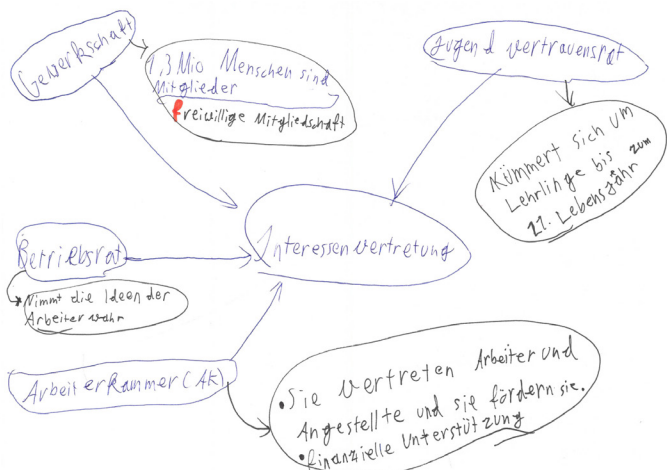 Gewerkschaft
1,3 Mio Menschen sind
Mitglieder
freiwillige Mitgliedschaft
Jugend vertrauensrat
Kümmert sich um
Lehrlinge bis zum
21. Lebensjahr
Interessenvertretung
Betriebsrat
Nimmt die Ideen der
Arbeiter wahr
Arbeiterkammer (AK)
• Sie vertreten Arbeiter und
Angestellte und sie fördern sie.
• finanzielle Unterstützung